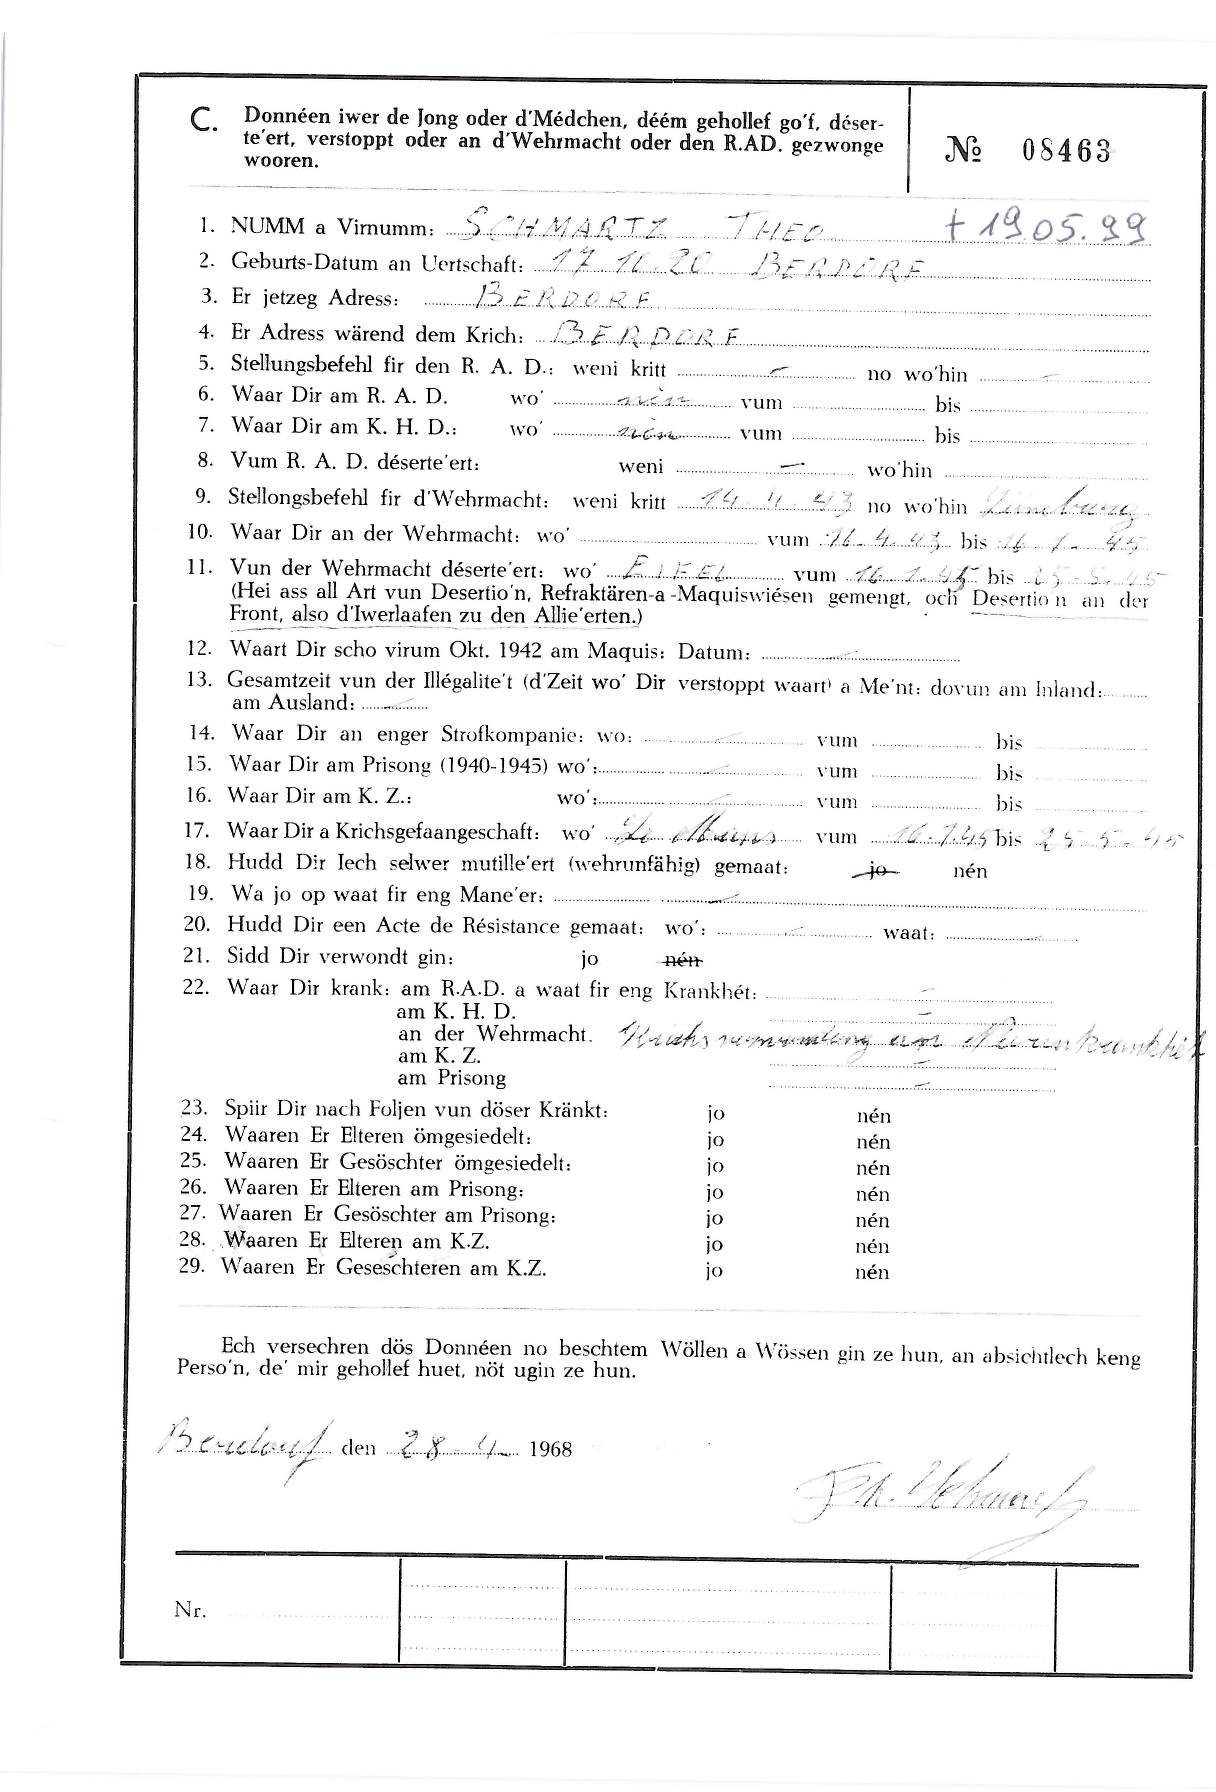 C. Donnéen iwer de Jong oder d'Médchen, déém gehollef go'f, déser-
te'ert, verstoppt oder an d'Wehrmacht oder den R.AD. gezwonge
wooren.
№ 08463
1. NUMM a Virnumm: SCHMARTZ THEO † 19.05.99
2. Geburts-Datum an Uertschaft: 17.10.20 BERDORF
3. Er jetzeg Adress: BERDORF
4. Er Adress wärend dem Krich: BERDORF
5. Stellungsbefehl fir den R. A. D.: weni kritt – no wo'hin –
6. Waar Dir am R. A. D. wo' nén vum bis
7. Waar Dir am K. H. D.: wo' nén vum bis
8. Vum R. A. D. déserte'ert: weni – wo'hin
9. Stellongsbefehl fir d'Wehrmacht: weni kritt 14.4.43 no wo'hin
10. Waar Dir an der Wehrmacht: wo' vum 16.4.43 bis 16.1.45
11. Vun der Wehrmacht déserte'ert: wo' EIFEL vum 16.1.45 bis 25.5.45
(Hei ass all Art vun Desertio'n, Refraktären-a -Maquiswiésen gemengt, och Desertio n an der
Front, also d'Iwerlaafen zu den Allie'erten.)
12. Waart Dir scho virum Okt. 1942 am Maquis: Datum: –
13. Gesamtzeit vun der Illégalite't (d'Zeit wo' Dir verstoppt waart) a Me'nt: dovun am Inland:
am Ausland: –
14. Waar Dir an enger Strofkompanie: wo: – vum bis
15. Waar Dir am Prisong (1940-1945) wo': – vum bis
16. Waar Dir am K. Z.: wo': – vum bis
17. Waar Dir a Krichsgefaangeschaft: wo' Le Mans vum 16.1.45 bis 25.5.45
18. Hudd Dir Iech selwer mutille'ert (wehrunfähig) gemaat: jo nén
19. Wa jo op waat fir eng Mane'er: –
20. Hudd Dir een Acte de Résistance gemaat: wo': – waat: –
21. Sidd Dir verwondt gin: jo nén
22. Waar Dir krank: am R.A.D. a waat fir eng Krankhét: –
am K. H. D. –
an der Wehrmacht. an
am K. Z. –
am Prisong –
23. Spiir Dir nach Foljen vun döser Kränkt: jo nén
24. Waaren Er Elteren ömgesiedelt: jo nén
25. Waaren Er Gesöschter ömgesiedelt: jo nén
26. Waaren Er Elteren am Prisong: jo nén
27. Waaren Er Gesöschter am Prisong: jo nén
28. Waaren Er Elteren am K.Z. jo nén
29. Waaren Er Geseschteren am K.Z. jo nén
Ech versechren dös Donnéen no beschtem Wöllen a Wössen gin ze hun, an absichtlech keng
Perso'n, de' mir gehollef huet, nöt ugin ze hun.
Berdorf den 28-4- 1968
Nr.